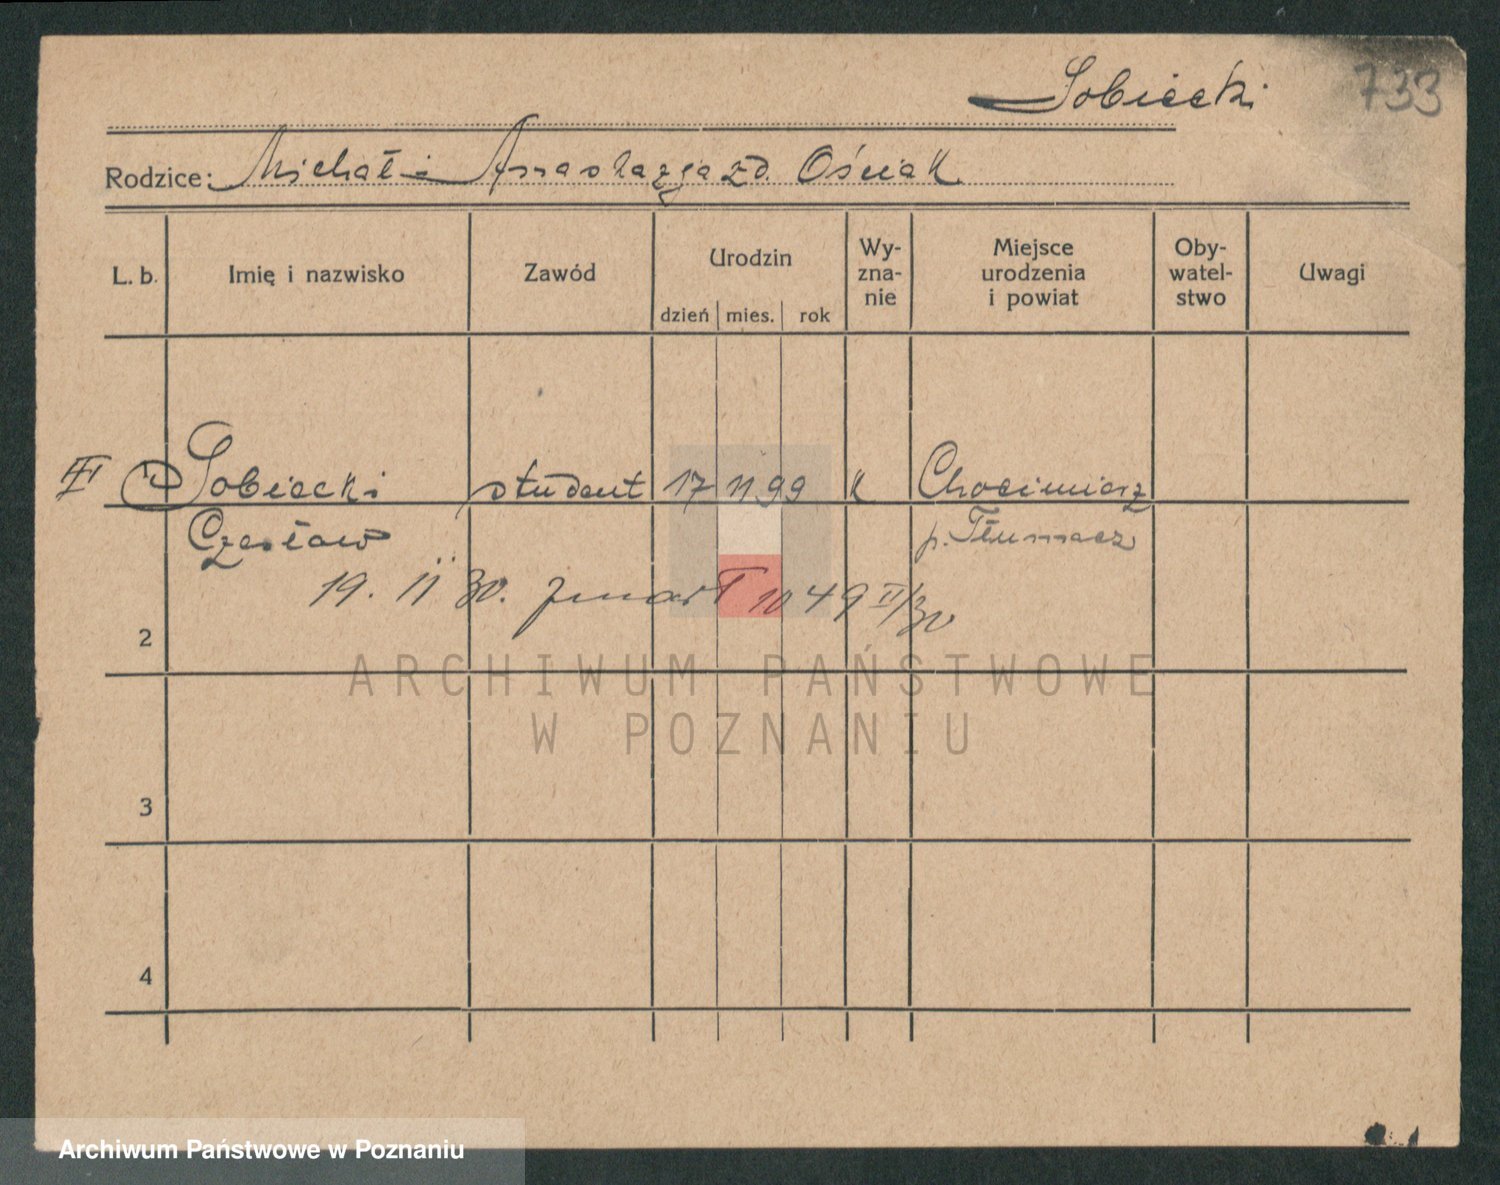 Sobiecki 733
Rodzice: Michał i Anastazja zd. Ośniak
L. b. Imię i nazwisko Zawód Urodzin Wy-zna-nie Miejsce urodzenia i powiat Oby-watel-stwo Uwagi
dzień mies. rok
III 1 Sobiecki student 17 11 99 k Chocimierz
Czesław p. Tłumacz
19. II 30. zmarł 1049 II/30
2
3
4
ARCHIWUM PAŃSTWOWE
W POZNANIU
Archiwum Państwowe w Poznaniu